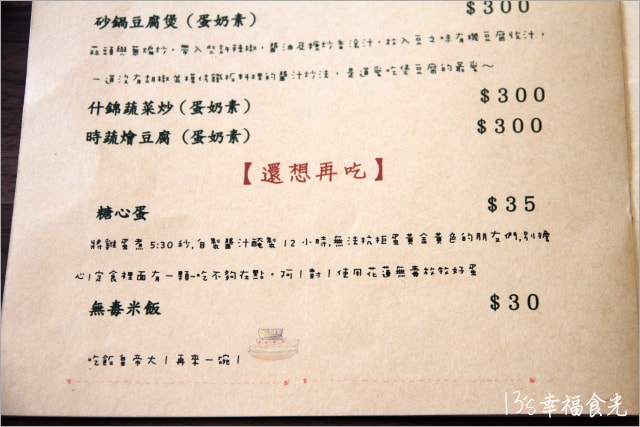 砂鍋豆腐煲（蛋奶素） $300
蒜頭與蔥煸炒，帶入些許辣椒，醬油及糖炒香滾汁，放入豆之味有機豆腐收汁，
一道沒有胡椒 鐵板料理的醬汁炒法，是道愛吃煲豆腐的最愛～
什錦蔬菜炒（蛋奶素） $300
時蔬燴豆腐（蛋奶素） $300
【還想再吃】
糖心蛋 $35
將雞蛋煮5:30秒,自製醬汁醃製12小時,無法抗拒蛋黃金黃色的朋友們,別擔
心!定食裡面有一顆~吃不夠在點。阿!對!使用花蓮無毒放牧好蛋
無毒米飯 $30
吃飯皇帝大!再來一碗!
13's幸福食光